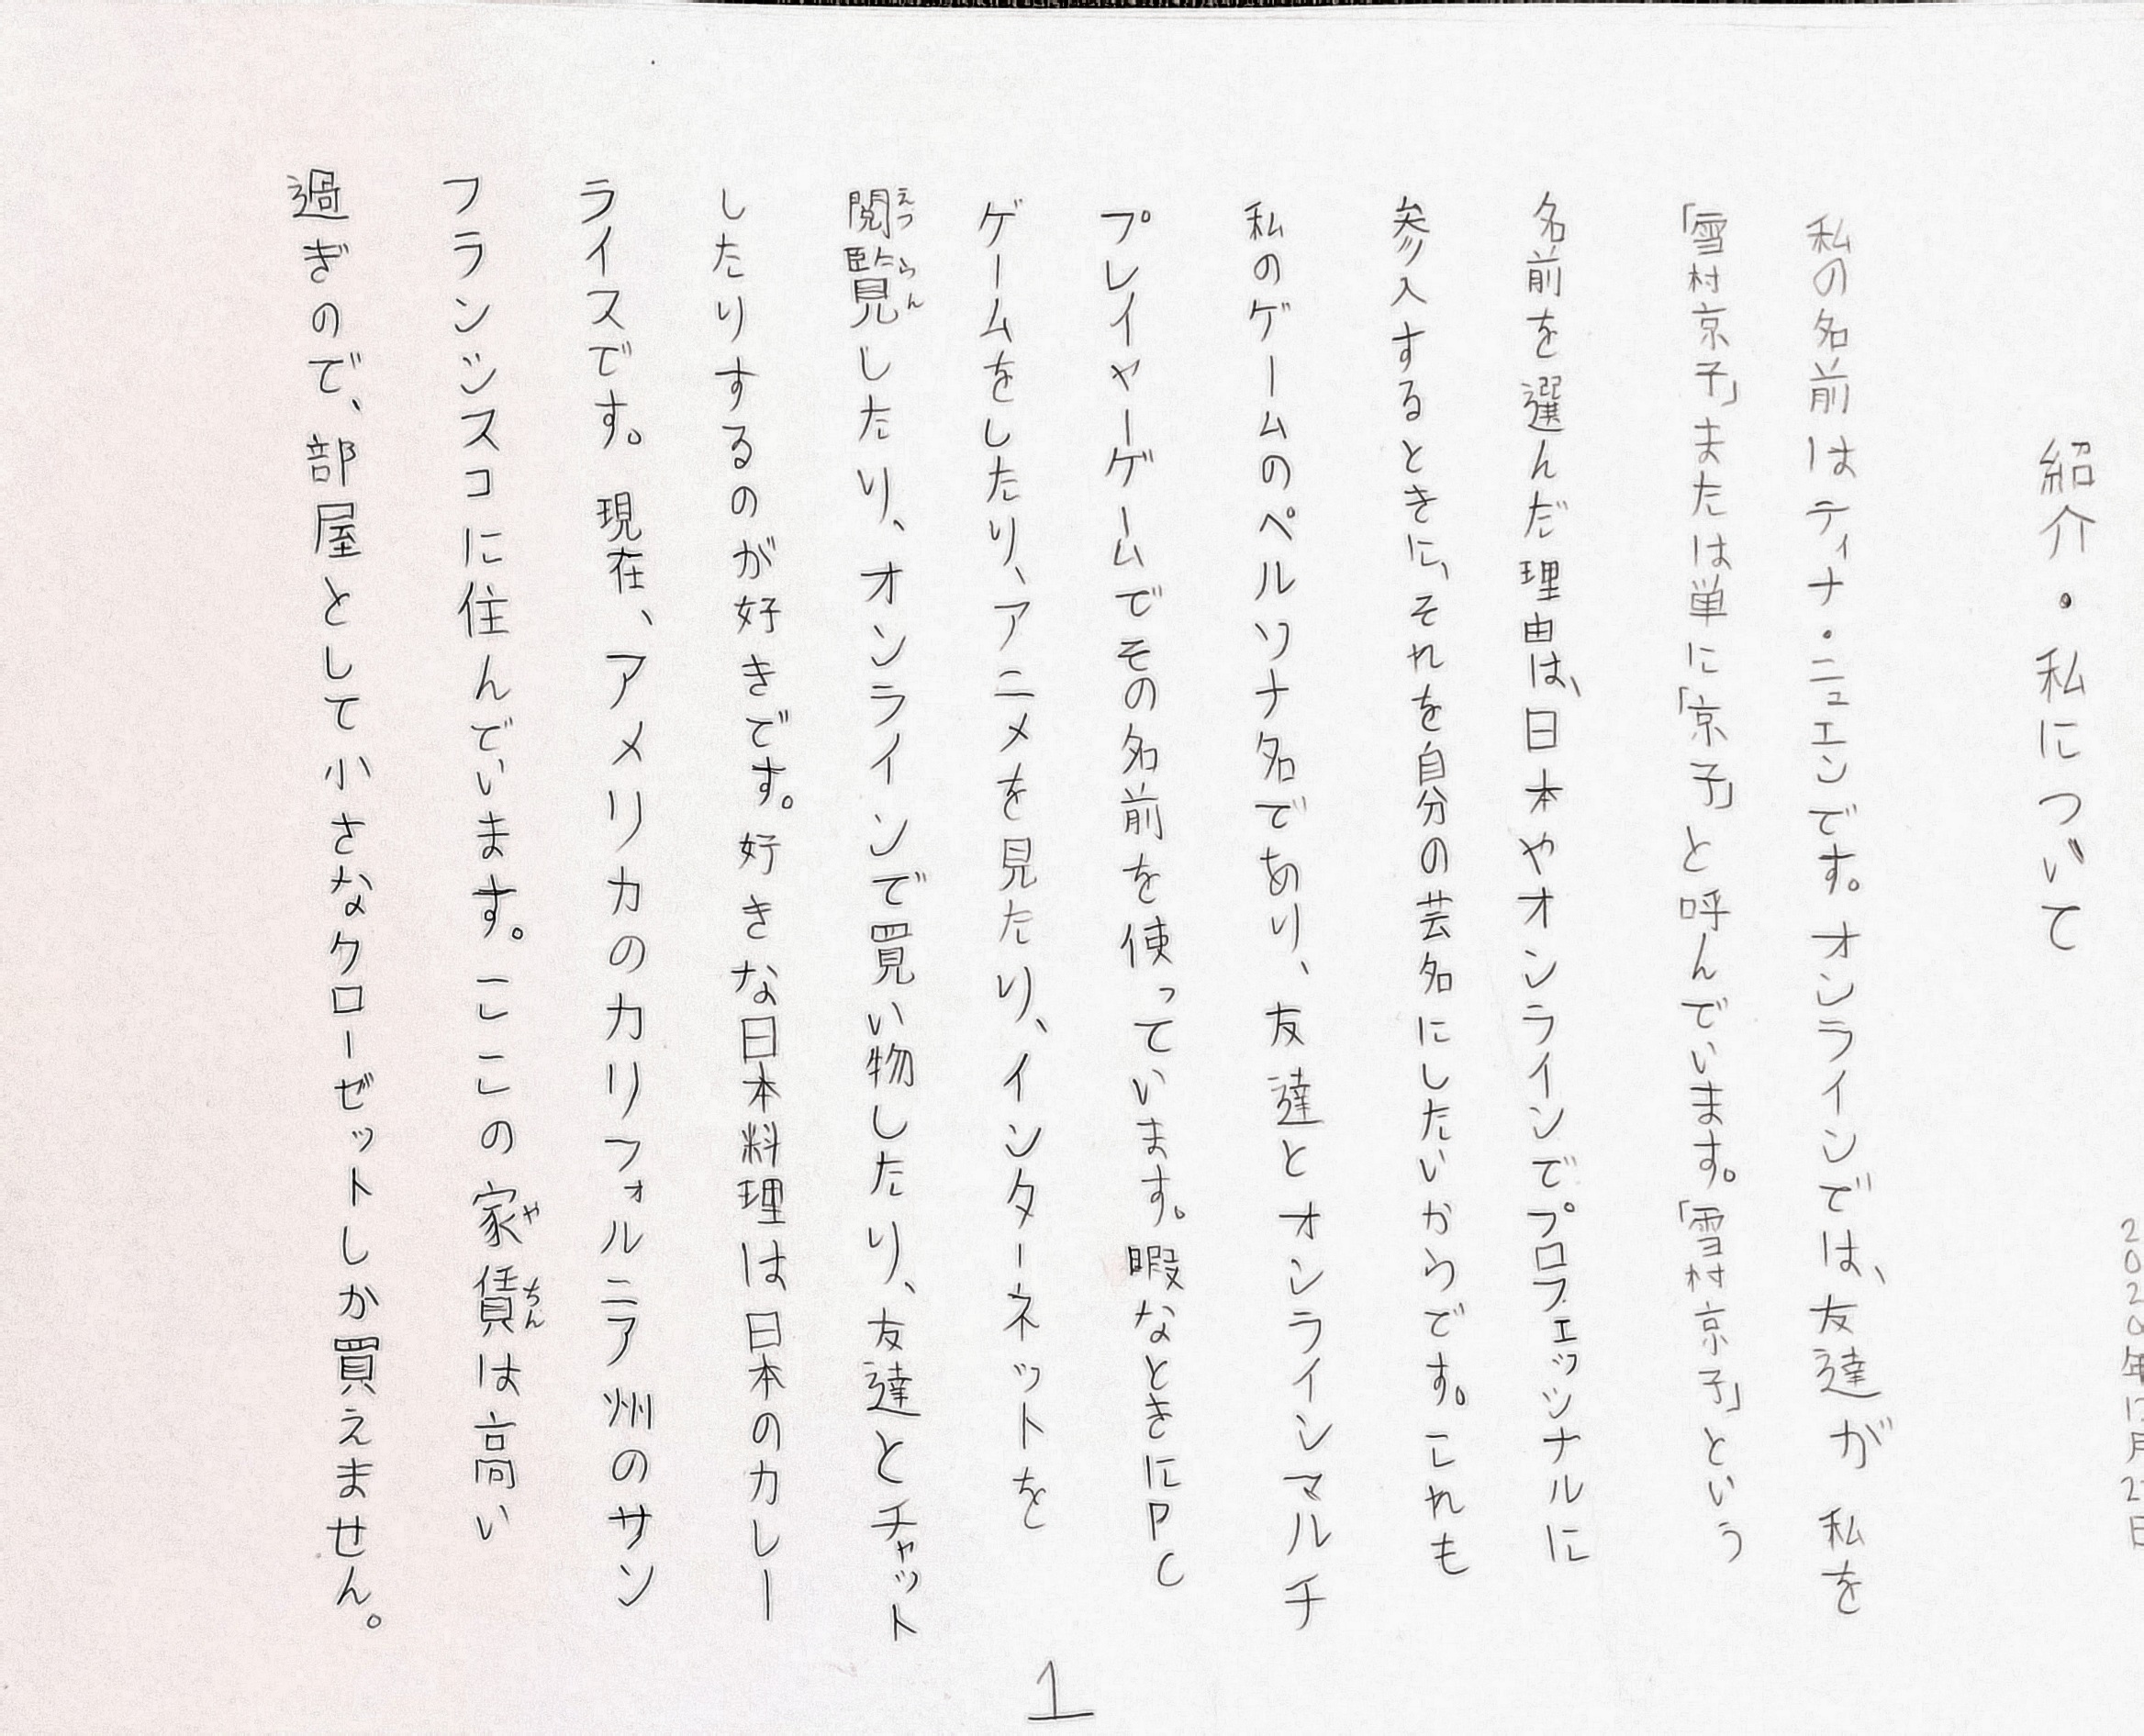 2020年12月2日
紹介・私について
私の名前はティナ・ニュエンです。オンラインでは、友達が私を
「雪村京子」または単に「京子」と呼んでいます。「雪村京子」という
名前を選んだ理由は、日本やオンラインでプロフェッシナルに
参入するときに、それを自分の芸名にしたいからです。これも
私のゲームのペルソナ名であり、友達とオンラインマルチ
プレイヤーゲームでその名前を使っています。暇なときにPC
ゲームをしたり、アニメを見たり、インターネットを
閲覧したり、オンラインで買い物したり、友達とチャット
えつらん
したりするのが好きです。好きな日本料理は日本のカレー
ライスです。現在、アメリカのカリフォルニア州のサン
フランシスコに住んでいます。ここの家賃は高い
やちん
過ぎので、部屋として小さなクローゼットしか買えません。
1